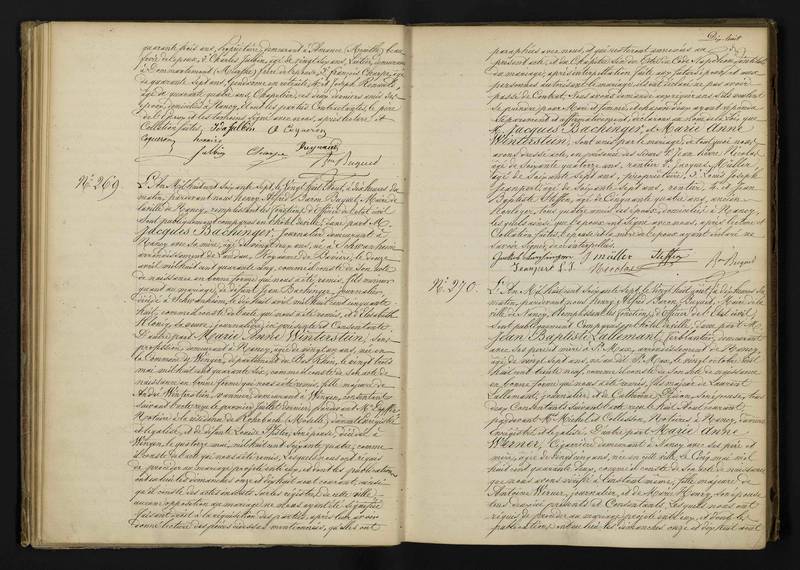 quarante trois ans, propriétaire, demeurant à Amance (Meurthe) beau
frère de l'époux, 3. Charles Julien, âgé de vingt six ans, Luthier, demeurant
à (Meurthe) frère de l'épouse, 3. François Champé, âgé
de quarante sept ans, Gendarme en retraite, 4. et Joseph Renauld,
âgé de quarante quatre ans, Chapelier, ces deux derniers amis des
époux, domiciliés à Nancy, et ont les parties Contractantes, le père
de l'époux et les témoins signé avec nous, après lecture et
Collation faites.
Julien
Bon Buquet
No. 269.
L'An Mil huit cent soixante sept, le vingt huit Août, à dix heures du
matin, pardevant nous Henry Alfred Baron Buquet, Maire de
la ville de Nancy, remplissant les fonctions d'Officier de l'état civil
sont publiquement comparus en l'hôtel de ville, d'une part M.
Jacques Bachinger, Journalier demeurant à
Nancy avec sa mère, âgé de vingt deux ans, né à Schwanheim
arrondissement de Landau, Royaume de Bavière, le douze
avril mil huit cent quarante cinq, comme il conste de son acte
de naissance en bonne forme qui nous a été remis, fils mineur
quant au mariage, de défunt Jean Bachinger Journalier
décédé à Schwanheim, le dix huit avril mil huit cent cinquante
huit, comme il conste de l'acte qui nous a été remis, et d'Elisabeth
sa veuve, journalière, ici présente et Consentante.
D'autre part Marie Anne Winterstein, sans
profession demeurant à Nancy, âgée de vingt un ans, née en
la Commune de Wingen, département du Bas Rhin, le vingt trois
mai mil huit cent quarante six, comme il conste de son acte de
naissance en bonne forme qui nous a été remis, fille majeure de
André Winterstein, vannier, demeurant à Wingen, consentant
suivant acte reçu le premier Juillet dernier, pardevant Me
Notaire à la résidence de Rohrbach (Moselle), dûment enregistré
et légalisé, et de défunte son épouse, décédée à
Wingen, le quatorze mai, mil huit cent soixante quatre, comme
il conste de l'acte qui nous a été remis, Lesquels nous ont requis
de procéder au mariage projeté entre eux, et dont les publications
ont eu lieu les dimanches onze et dix huit août courant, ainsi
qu'il conste des actes insérés sur les registres de cette ville,
aucune opposition au mariage ne nous ayant été signifiée
faisant droit à la réquisition des parties, après leur avoir
donné lecture des pièces ci-dessus mentionnées, qu'elles ont
Dix huit
paraphées avec nous, et qui resteront annexées au
présent acte, et du Chapitre Six du Code Napoléon, intitulé
du mariage, après interpellation faite aux futurs époux et aux
personnes autorisant le mariage, ils ont déclaré ne pas avoir
passé de Contrat. Nous avons demandé aux parties si elles veulent
se prendre pour Mari et femme, et chacun d'eux ayant répondu
séparément et affirmativement, déclarons au nom de la loi que
M. Jacques Bachinger, et Marie Anne
Winterstein, sont unis par le mariage, de tout quoi nous
avons dressé acte, en présence des sieurs 1. Jean Pierre Nicolas,
âgé de soixante quatre ans, rentier, 2. Jacques Müller
âgé de soixante sept ans, propriétaire, 3. Louis Joseph
Jeanpert, âgé de soixante sept ans, rentier, 4. et Jean
Baptiste Steffen, âgé de Cinquante quatre ans, ancien
Horloger, tous quatre amis des époux, domiciliés à Nancy,
lesquels ainsi que l'époux ont signé avec nous, après lecture et
Collation faites, l'épouse et la mère de l'époux ayant déclaré ne
savoir signer, de ce interpellées.
J müller Steffen
Jeanpert L. J. Nicolas Bon Buquet
No. 270.
L'An Mil huit cent Soixante Sept, le Vingt huit Août, à dix heures du
matin, pardevant nous Henry Alfred Baron Buquet, Maire de la
ville de Nancy, remplissant les fonctions d'Officier de l'Etat civil
sont publiquement Comparus en l'hôtel de ville, d'une part M.
Jean Baptiste Lallemant, demeurant
avec ses père et mère à Pt. Max, arrondissement de Nancy,
âgé de vingt sept ans, né au dit Pt. Max, le vingt octobre mil
huit cent trente neuf, comme il conste de son acte de naissance
en bonne forme qui nous a été remis, fils majeur de Laurent
Lallemant, journalier, et de Catherine son épouse, tous
deux Consentants suivant acte reçu le huit Août courant,
pardevant Me Michel et Collesson, Notaires à Nancy, dûment
enregistré et légalisé. D'autre part Marie Anne
Werner, Cigarière demeurant à Nancy avec ses père et
mère, âgée de vingt cinq ans, née en cette ville, le Cinq mai mil
huit cent quarante deux, comme il conste de son acte de naissance
que nous avons vérifié à l'instant même, fille majeure de
Antoine Werner, journalier, et de Marie son épouse
tous deux ici présents et Consentants, Lesquels nous ont
requis de procéder au mariage projeté entre eux, et dont les
publications ont eu lieu les dimanches onze et dix huit août